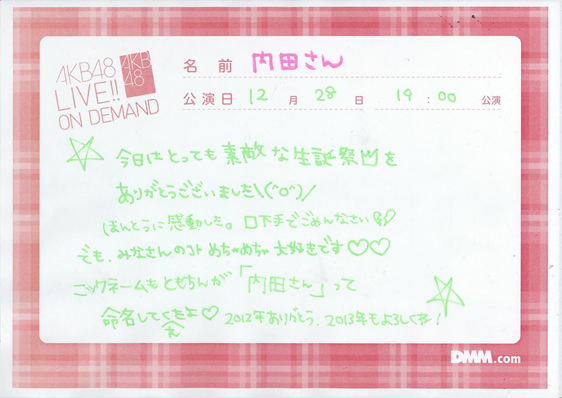 AKB48
LIVE!!
ON DEMAND
AKB
48
名前 内田さん
公演日 12 月 28 日 19:00 公演
☆ 今日はとっても素敵な生誕祭を
ありがとうございました\(^o^)/
ほんとうに感動した。口下手でごめんなさい
でも、みなさんのコト めちゃめちゃ大好きです♡♡
ニックネームもともちんが「内田さん」って
命名してくれたよ♡ 2012年ありがとう、2013年もよろしくネ! ☆
DMM.com